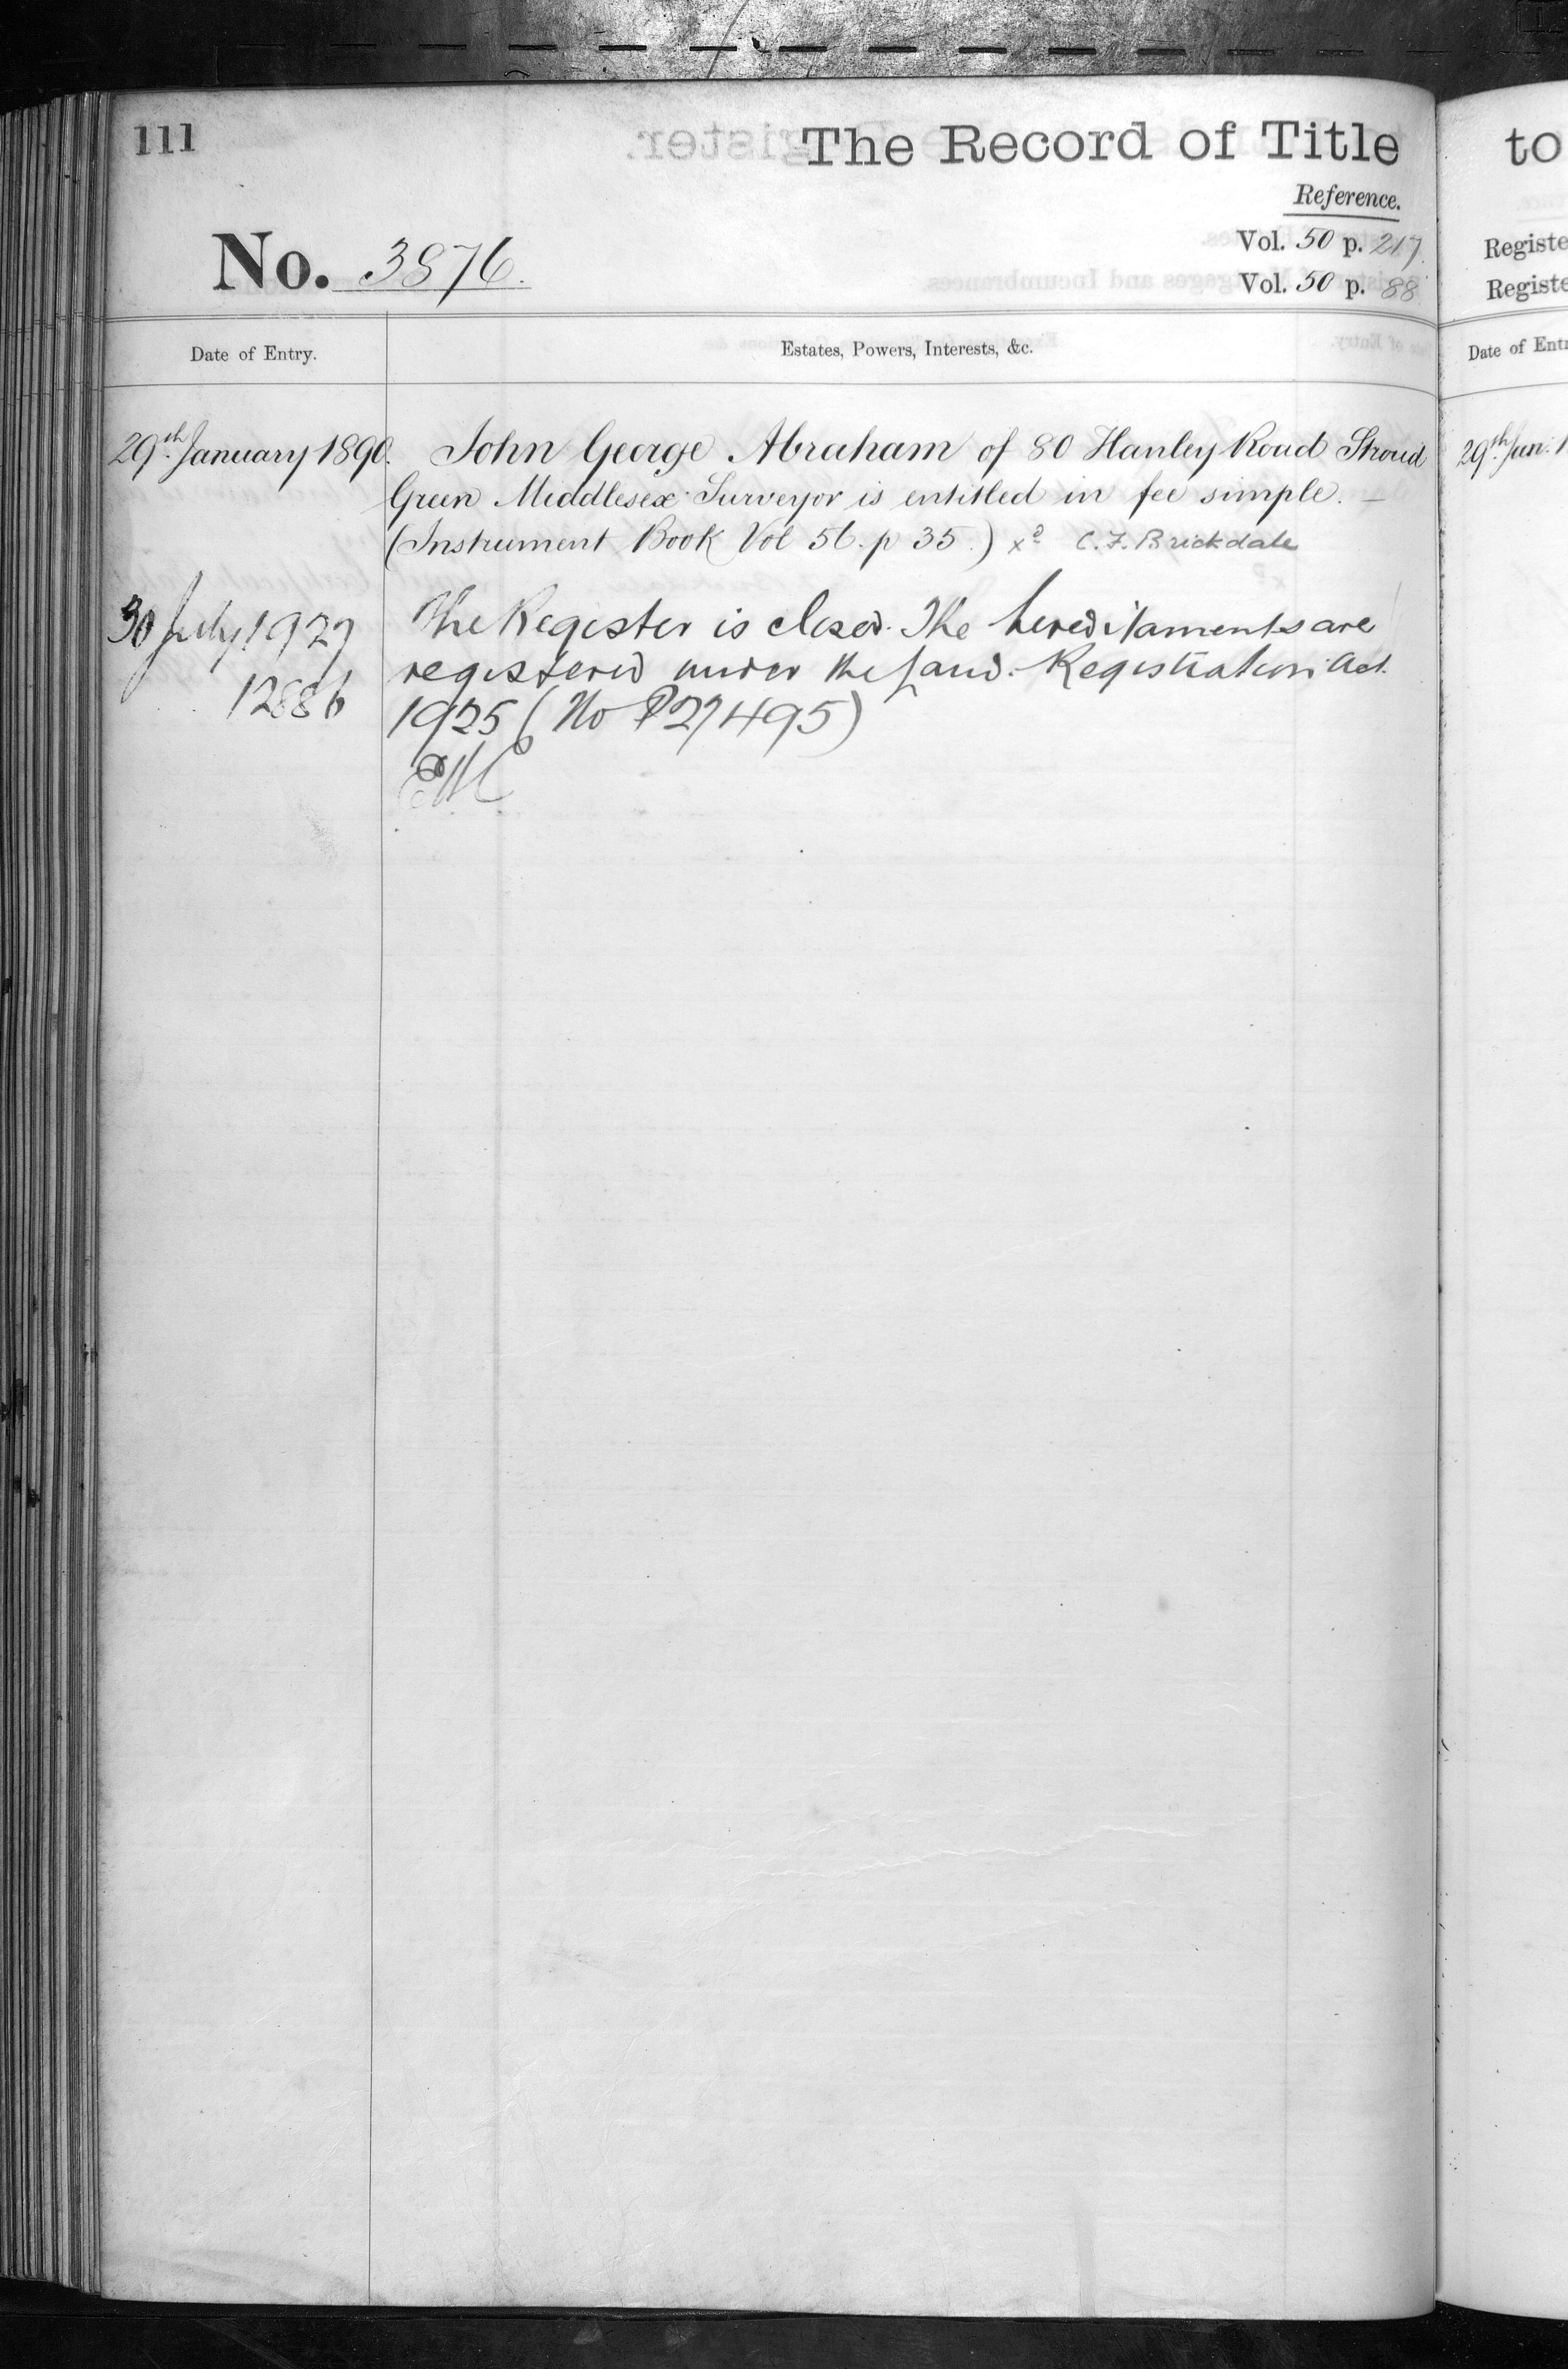 111
The Record of Title
Reference.
No. 3876.
Vol. 50 p. 217.
Vol. 50 p. 88
Date of Entry.
Estates, Powers, Interests, &c.
29th January 1890. John George Abraham of 80 Hanley Road Stroud
Green Middlesex Surveyor is entitled in fee simple. —
(Instrument Book Vol 56. p 35.) xd C. F. Brickdale
30 July 1927 The Register is closed. The hereditaments are
12886 registered under the Land Registration Act
1925 (No P27495)
to
Registe
Registe
Date of Entr
29th Jan: 1